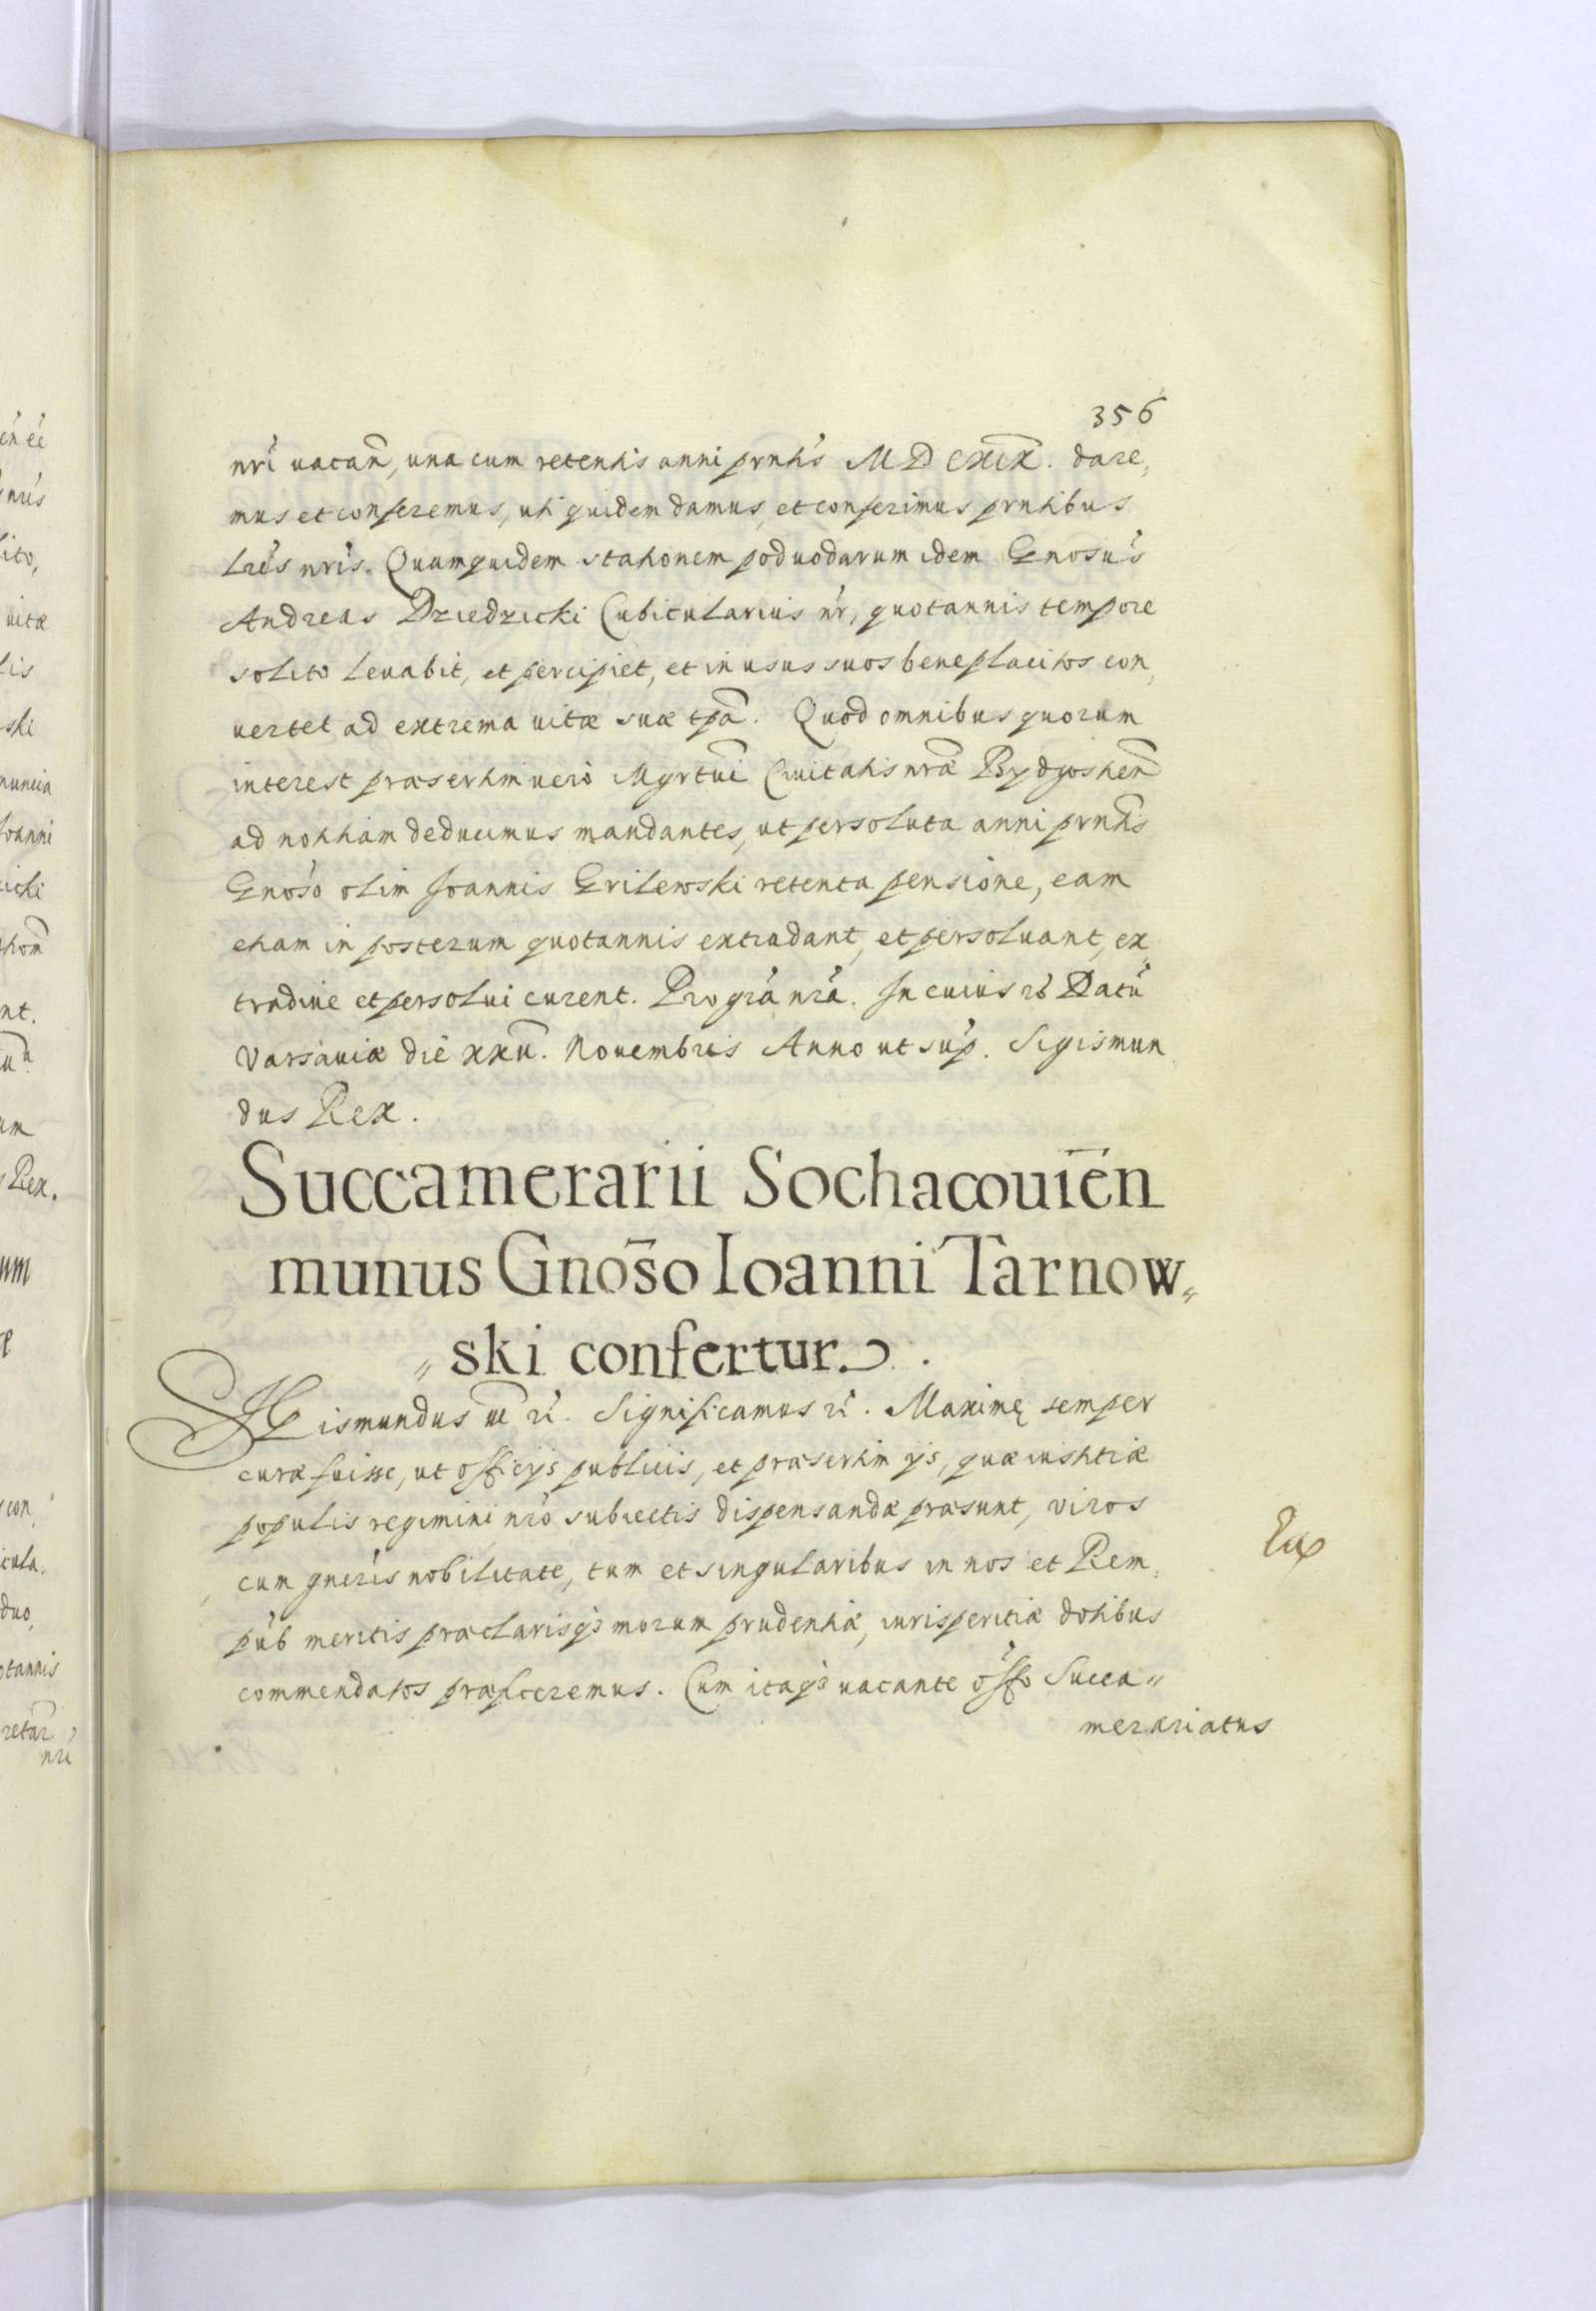 356
nri vacan̄, una cum retentis anni prntis MDCXIX. dare,
mus et conferemus, uti quidem damus, et conferimus prntibus
Lris nris. Quamquidem stationem podvodarum idem Gnosus
Andreas Dziedzicki Cubicularius nr, quotannis tempore
solito levabit, et percipiet, et in usus suos beneplacitos con,
vertet ad extrema vitæ suæ tpā. Quod omnibus quorum
interest præsertim vero Mgrtui Civitatis nræ Bydgostien̄
ad notitiam deducimus mandantes, ut persoluta anni prntis
Gnoso olim Joannis Grilewski retenta pensione, eam
etiam in posterum quotannis extradant, et persolvant, ex,
tradive et persolvi curent. Pro gra nra. In cuius rei Datū
Varsaviæ die XXII. Novembris Anno ut sup. Sigismun,
dus Rex.
Succamerarii Sochacouien̄
munus Gnōso Ioanni Tarnow„
„ski confertur.
Sigismundus Significamus Maximę semper
curæ fuisse, ut officijs publicis, et præsertim ijs, quæ iustitiæ
populis regimini nro subiectis dispensandæ præsunt, viros
cum gneris nobilitate, tum et singularibus in nos et Rem,
pub meritis præclarisq3 morum prudentiæ, iurisperitiæ dotibus
commendatos præficeremus. Cum itaq3 vacante offo Succa„
merariatus